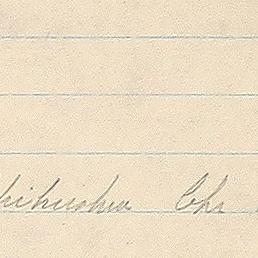 hihuahua Chi